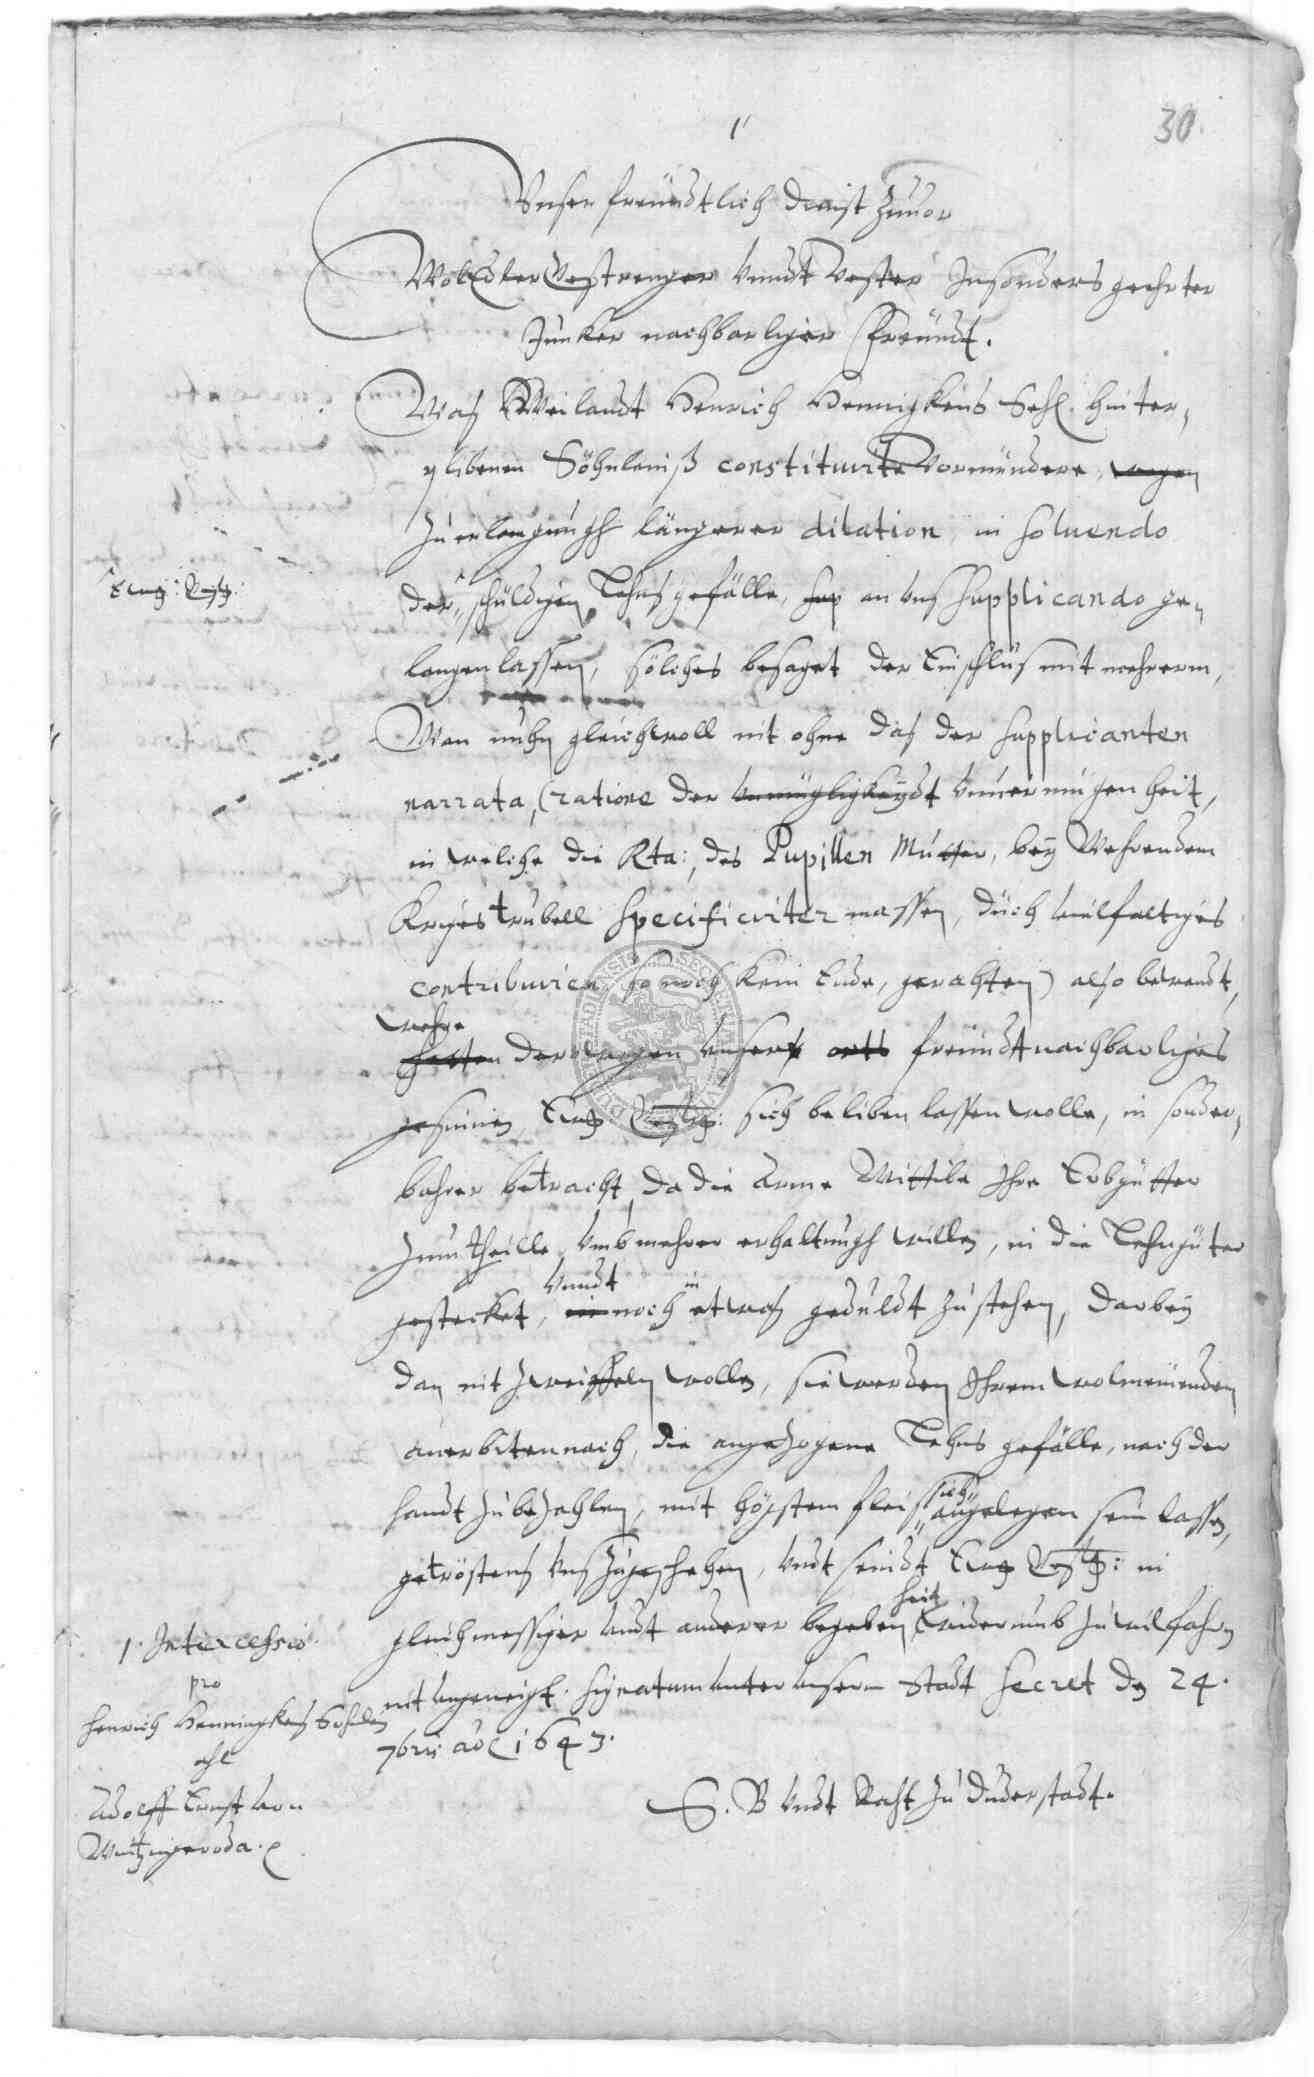 1
30
Unser freundtlich dienst zuvor
WolEdler Gestrenger undt Vester Insonders geehrter
Juncker nachbarliger Freundt.
Was Weilandt Henrich Hennigkens Sehl. hinter,
plibenen Söhnleinß constituirte Vormündere, wegen
zu erlangungh längerer dilation, in solvendo
Ewg: Vestg:
der schuldigen Lehns gefälle, sup an uns supplicando ge,
langen lassen, solches besaget der Einschlus mit mehrerm,
Wan nuhn gleichwoll nit ohne das der supplicanten
narrata, (ratione der unmügligkeydt unvermügenheit,
in welche die Rta:, des Pupillen Mutter, bey Wehrendem
Kriges trubell specificirter massen, durch vielfaltiges
contribuiren so noch kein Ende, gerahten) also bewandt,
wehre
hetten derowegen unsers orts freundtnachbarliges
gesinnen, Ewg Vestg: sich beliben lassen wolle, in sonder,
bahrer betracht, da die Arme Wittibe Ihre Erbgütter
zum theille umb mehrer erhaltungh willen, in die Lehngüter
undt in
gestecket, in noch etwas geduldt zu stehen, darbey
dan nit zweiffeln wollen, sie werden Ihrem wolmeinenden
anerbiten nach, die angezogene Lehns gefälle, nach der
sich
handt zu bezahlen, mit högstem fleis angelegen sein lassen,
getröstens uns zugeschehen, undt seindt Ewg Vestg: in
heit
gleichmessiger undt anderer begeben widerumb zu wilfahren
mit ungeneigt. Signatum unter unserm Stadt Secret den 24.
7bris ao 1643.
S. B undt Raht zu Duderstadt.
1. Intercessio
pro
Henrich Hennigkens Sohnlen
ahn
Adolff Ernst von
Wintzingeroda.